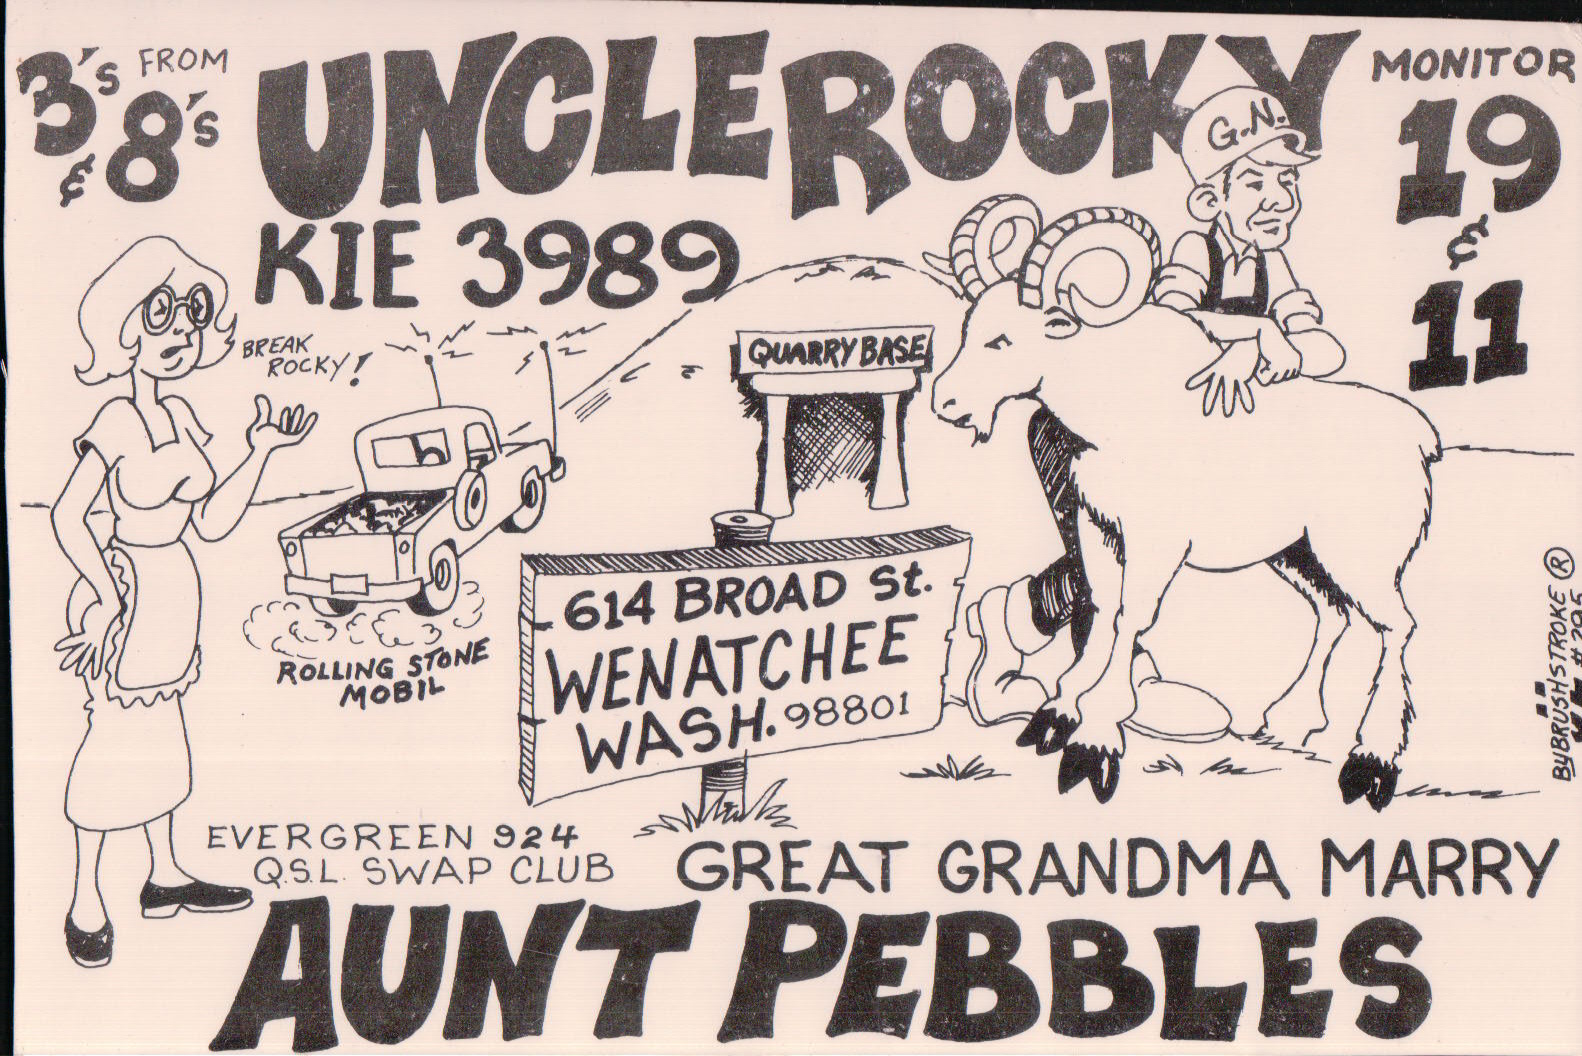 3's FROM
& 8's
UNCLE ROCKY
KIE 3989
MONITOR
19
&
11
G.N.
BREAK
ROCKY!
QUARRY BASE
614 BROAD St.
WENATCHEE
WASH. 98801
ROLLING STONE
MOBIL
EVERGREEN 924
Q.S.L. SWAP CLUB
GREAT GRANDMA MARRY
AUNT PEBBLES
BY BRUSHSTROKE ®